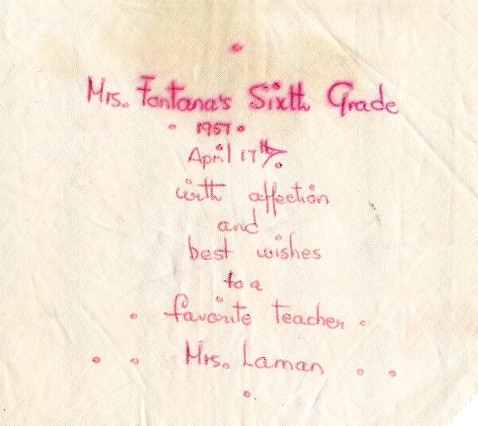 Mrs. Fontana's Sixth Grade
1957
April 17th
with affection
and
best wishes
to a
favorite teacher
Mrs. Laman